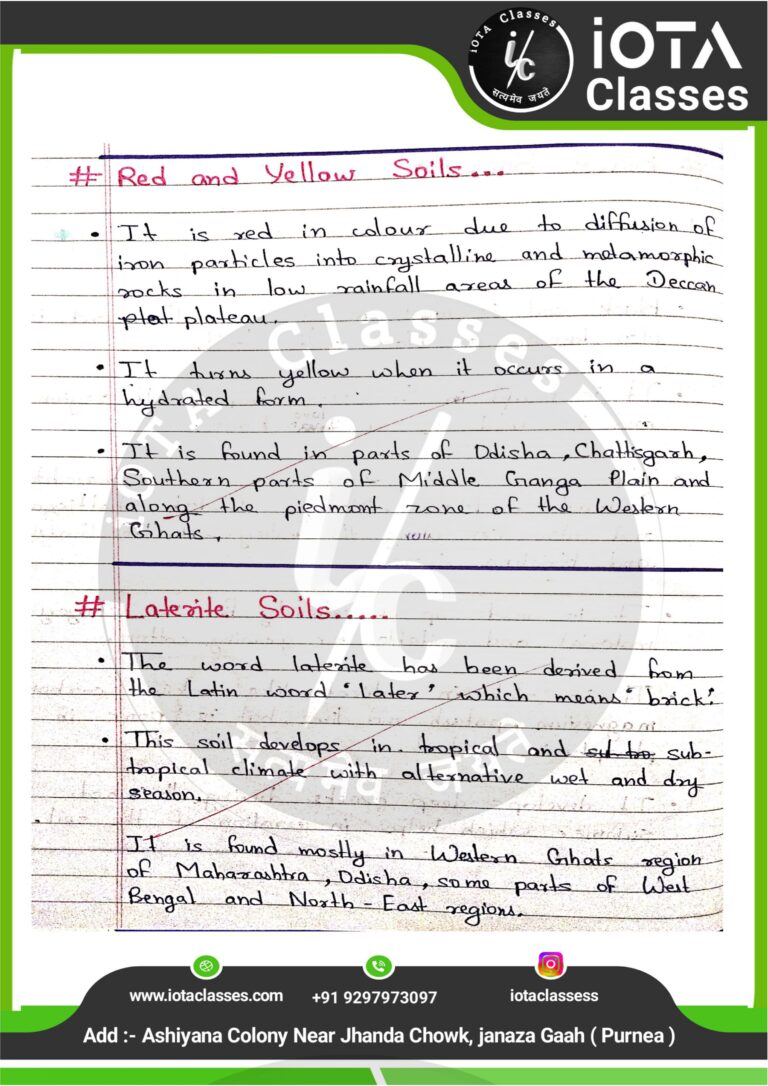 iOTA Classes
i/c
सत्यमेव जयते
iOTA
Classes
# Red and Yellow Soils...
• It is red in colour due to diffusion of
iron particles into crystalline and metamorphic
rocks in low rainfall areas of the Deccan
plat plateau.
• It turns yellow when it occurs in a
hydrated form.
• It is found in parts of Odisha, Chattisgarh,
Southern parts of Middle Ganga Plain and
along the piedmont zone of the Western
Ghats.
# Laterite Soils.....
• The word laterite has been derived from
the Latin word 'Later' which means 'brick'.
• This soil develops in tropical and sub-
tropical climate with alternative wet and dry
season.
It is found mostly in Western Ghats region
of Maharashtra, Odisha, some parts of West
Bengal and North-East regions.
iOTA Classes
i/c
सत्यमेव जयते
www.iotaclasses.com
+91 9297973097
iotaclassess
Add :- Ashiyana Colony Near Jhanda Chowk, janaza Gaah ( Purnea )